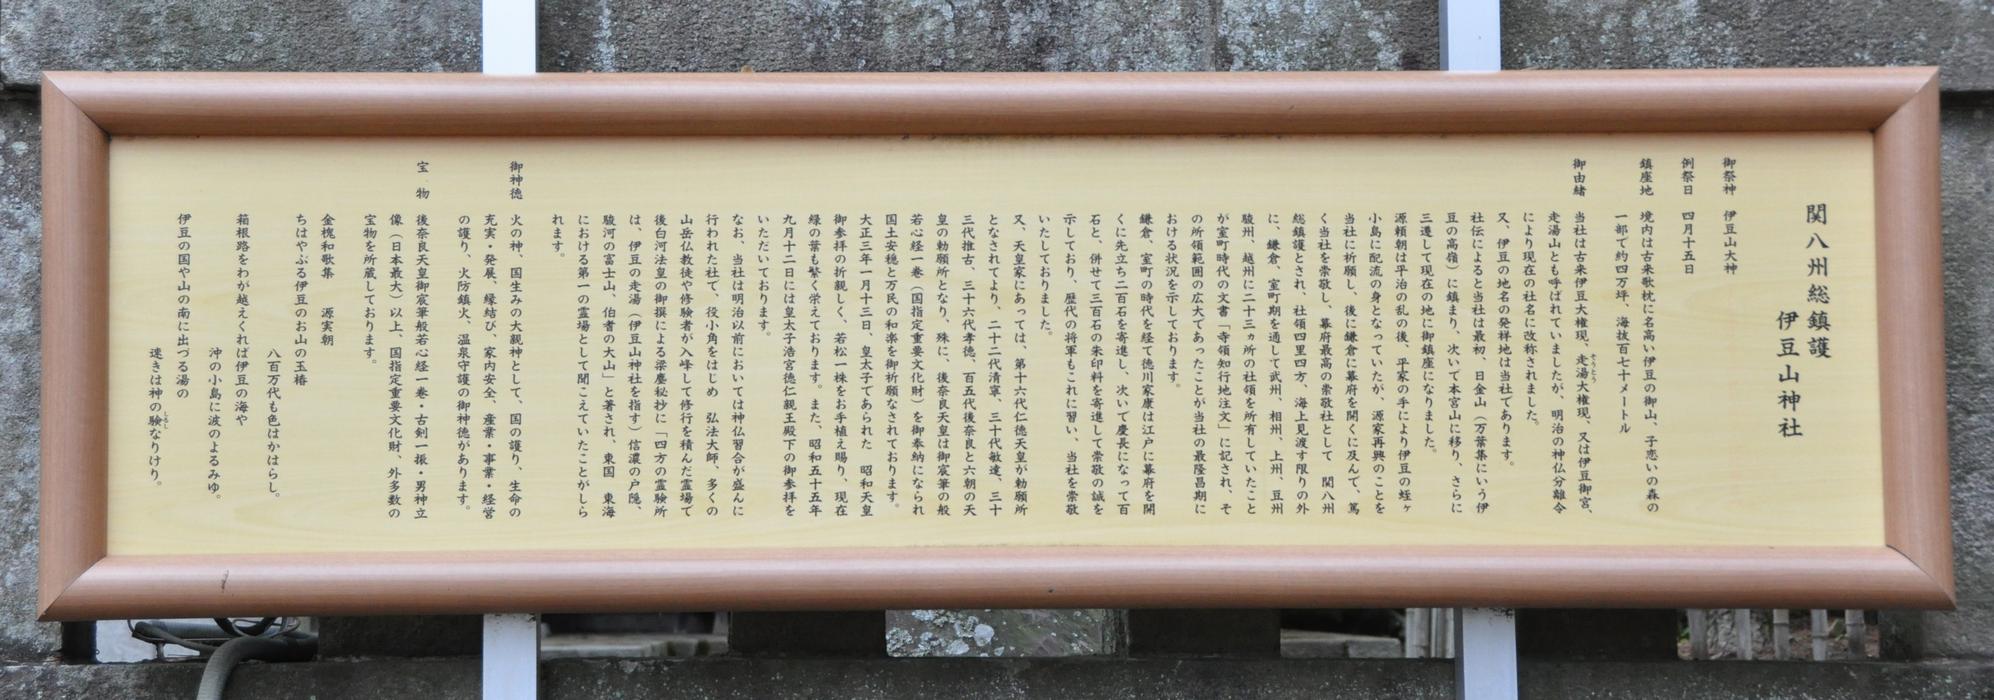 関八州総鎮護
伊豆山神社
御祭神　伊豆山大神
例祭日　四月十五日
鎮座地　境内は古来歌枕に名高い伊豆の御山、子恋いの森の
一部で約四万坪、海抜百七十メートル
御由緒　当社は古来伊豆大権現、走湯大権現、又は伊豆御宮、
走湯山とも呼ばれていましたが、明治の神仏分離令
により現在の社名に改称されました。
又、伊豆の地名の発祥地は当社であります。
社伝によると当社は最初、日金山（万葉集にいう伊
豆の高嶺）に鎮まり、次いで本宮山に移り、さらに
三遷して現在の地に御鎮座になりました。
源頼朝は平治の乱の後、平家の手により伊豆の蛭ヶ
小島に配流の身となっていたが、源家再興のことを
当社に祈願し、後に鎌倉に幕府を開くに及んで、篤
く当社を崇敬し、幕府最高の崇敬社として　関八州
総鎮護とされ、社領四里四方、海上見渡す限りの外
に、鎌倉、室町期を通して武州、相州、上州、豆州
駿州、越州に二十三ヵ所の社領を所有していたこと
が室町時代の文書「寺領知行地注文」に記され、そ
の所領範囲の広大であったことが当社の最隆昌期に
おける状況を示しております。
鎌倉、室町の時代を経て徳川家康は江戸に幕府を開
くに先立ち二百石を寄進し、次いで慶長になって百
石と、併せて三百石の朱印料を寄進して崇敬の誠を
示しており、歴代の将軍もこれに習い、当社を崇敬
いたしておりました。
又、天皇家にあっては、第十六代仁徳天皇が勅願所
となされてより、二十二代清寧、三十代敏達、三十
三代推古、三十六代孝徳、百五代後奈良と六朝の天
皇の勅願所となり、殊に、後奈良天皇は御宸筆の般
若心経一巻（国指定重要文化財）を御奉納になられ
国土安穏と万民の和楽を御祈願なされております。
大正三年一月十三日、皇太子であられた　昭和天皇
御参拝の折親しく、若松一株をお手植え賜り、現在
緑の葉も繁く栄えております。また、昭和五十五年
九月十二日には皇太子浩宮徳仁親王殿下の御参拝を
いただいております。
なお、当社は明治以前においては神仏習合が盛んに
行われた社で、役小角をはじめ　弘法大師、多くの
山岳仏教徒や修験者が入峰して修行を積んだ霊場で
後白河法皇の御撰による梁塵秘抄に「四方の霊験所
は、伊豆の走湯（伊豆山神社を指す）信濃の戸隠、
駿河の富士山、伯耆の大山」と著され、東国　東海
における第一の霊場として聞こえていたことがしら
れます。
御神徳　火の神、国生みの大親神として、国の護り、生命の
充実・発展、縁結び、家内安全、産業・事業・経営
の護り、火防鎮火、温泉守護の御神徳があります。
宝　物　後奈良天皇御宸筆般若心経一巻・古剣一振・男神立
像（日本最大）以上、国指定重要文化財、外多数の
宝物を所蔵しております。
金槐和歌集　源実朝
ちはやぶる伊豆のお山の玉椿
八百万代も色はかはらし。
箱根路をわが越えくれば伊豆の海や
沖の小島に波のよるみゆ。
伊豆の国や山の南に出づる湯の
速きは神の験なりけり。